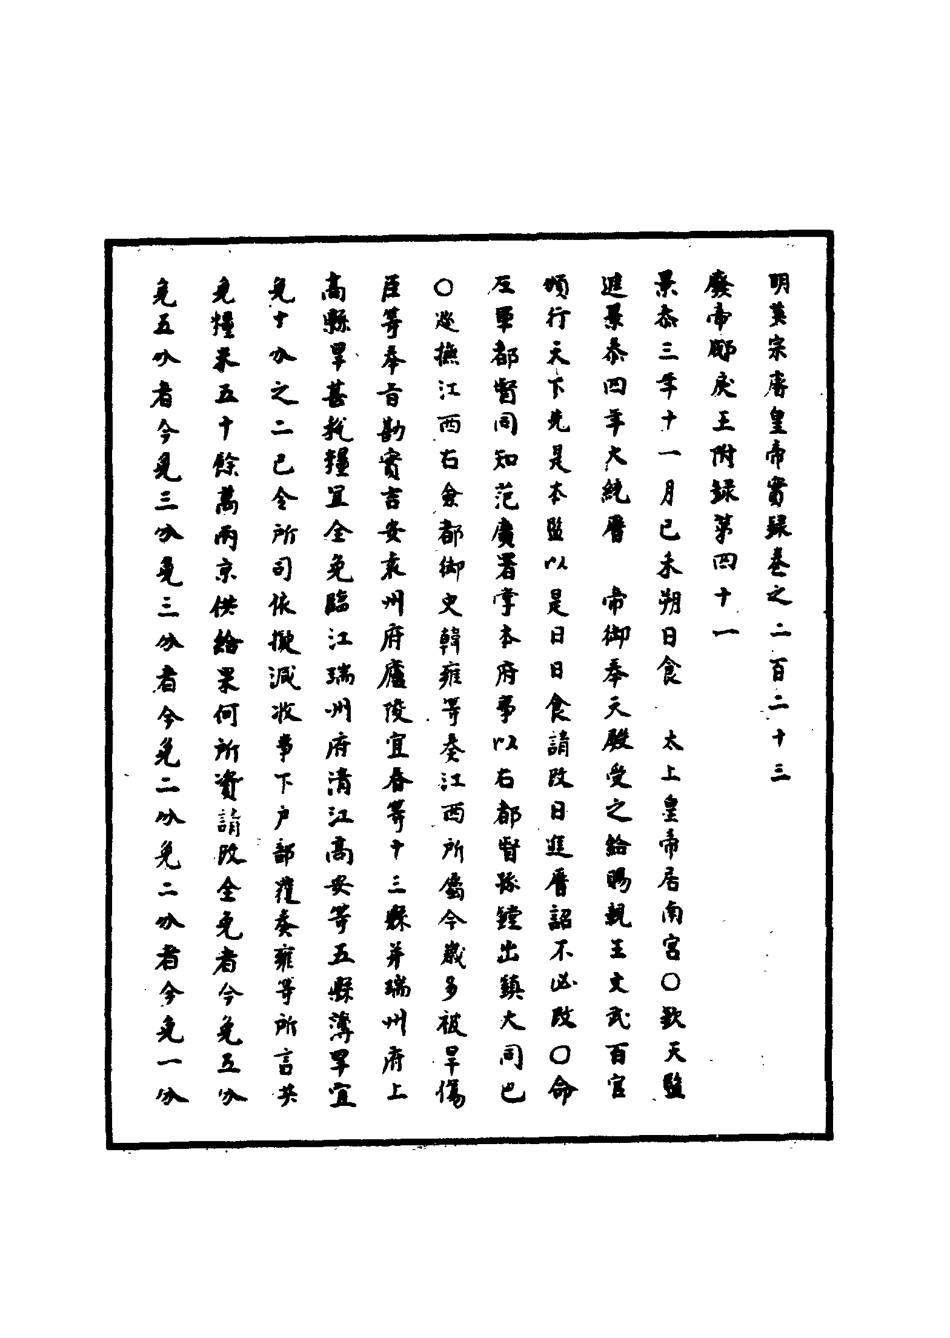 明英宗睿皇帝實録卷之二百二十三
廢帝郕戾王附録第四十一
景泰三年十一月已未朔日食　太上皇帝居南宮○欽天監
進景泰四年大統曆　帝御奉天殿受之給賜親王文武百官
頒行天下先是本監以是日日食請改日進曆詔不必改○命
左軍都督同知范廣署掌本府事以右都督孫鏜出鎮大同也
○巡撫江西右僉都御史韓雍等奏江西所屬今歲多被旱傷
臣等奉旨勘實吉安袁州府廬陵宜春等十三縣并瑞州府上
高縣旱甚稅糧宜全免臨江瑞州府清江高安等五縣薄旱宜
免十分之二已令所司依擬減收事下户部覆奏雍等所言共
免糧米五十餘萬兩京供給果何所資請改全免者今免五分
免五分者今免三分免三分者今免二分免二分者今免一分